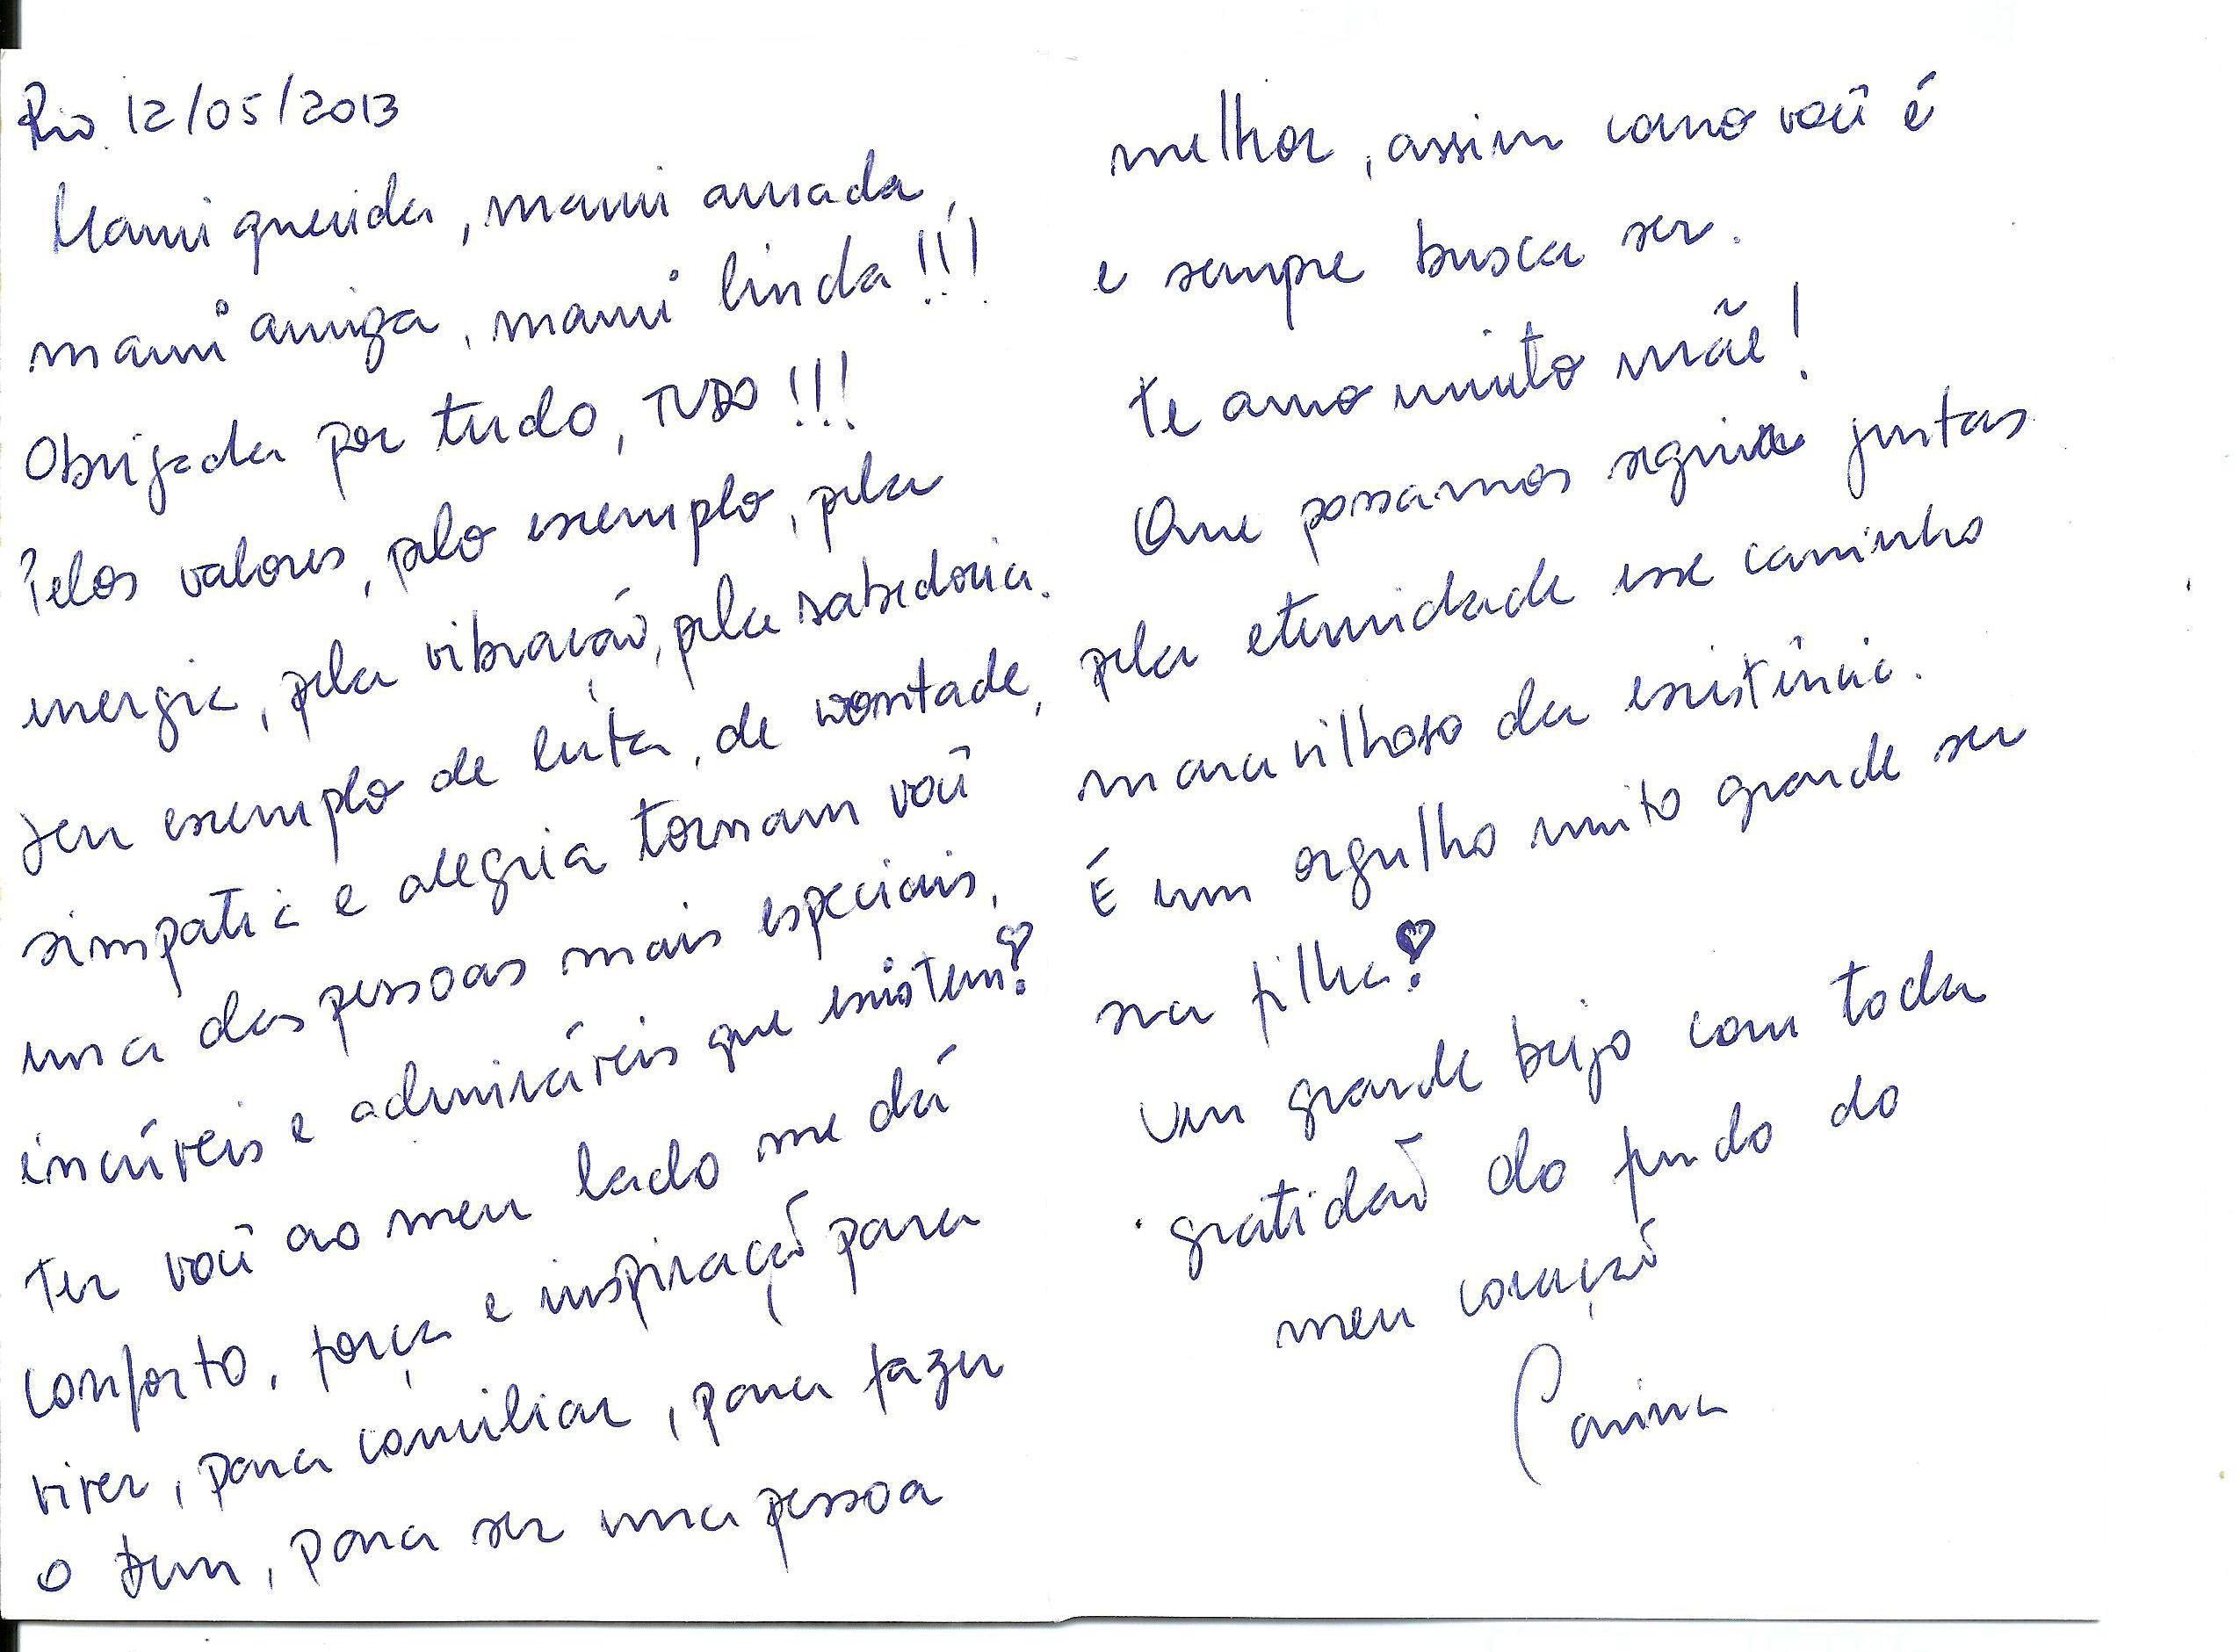 Rio 12/05/2013
Mami querida, mami amada,
mami amiga, mami linda!!!
Obrigada por tudo, TUDO!!!
Pelos valores, pelo exemplo, pela
energia, pela vibração, pela sabedoria.
Seu exemplo de luta, de vontade,
simpatia e alegria tornam você
uma das pessoas mais especiais,
incríveis e admiráveis que existem!
Ter você ao meu lado me dá
conforto, força e inspiração para
viver, para conciliar, para fazer
o bem, para ser uma pessoa
melhor, assim como você é
e sempre busca ser.
Te amo muito mãe!
Que possamos seguir juntas
pela eternidade esse caminho
maravilhoso da existência.
É um orgulho muito grande ser
sua filha!
Um grande beijo com toda
gratidão do fundo do
meu coração
Carina